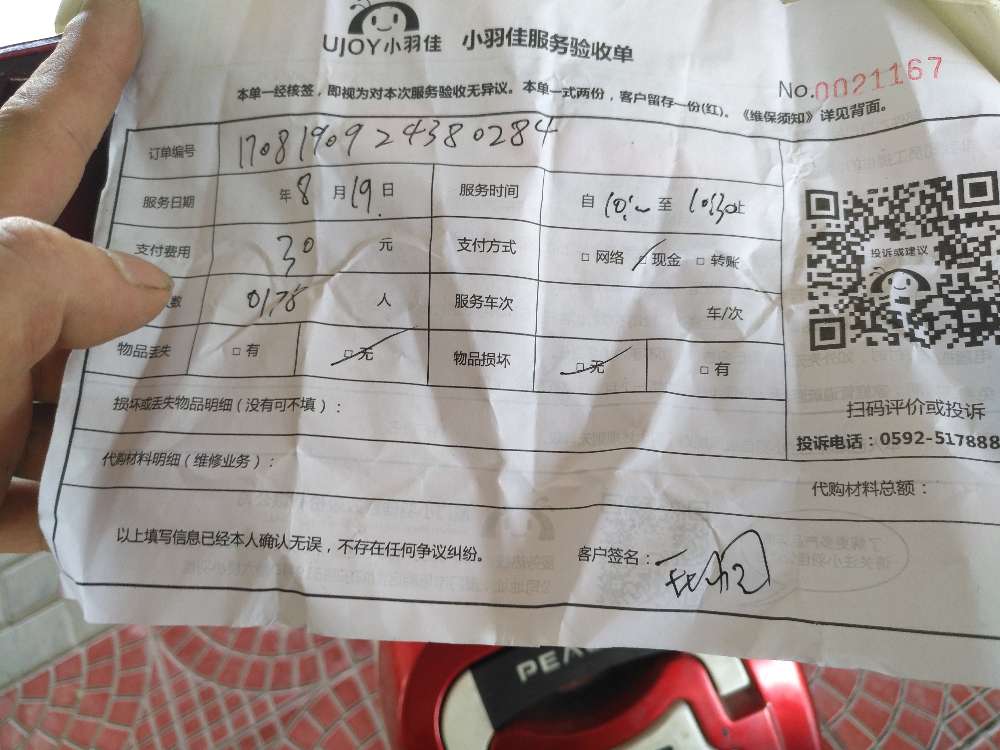 UJOY小羽佳 小羽佳服务验收单
No.0021167
本单一经核签，即视为对本次服务验收无异议。本单一式两份，客户留存一份(红)。《维保须知》详见背面。
订单编号 1708190924380284
服务日期 年8月19日 服务时间 自10:~至10:30止
支付费用 30 元 支付方式 □网络 □现金 □转账
数 0178 人 服务车次 车/次
物品丢失 □有 □无 物品损坏 □无 □有
损坏或丢失物品明细（没有可不填）：
代购材料明细（维修业务）：
投诉或建议
扫码评价或投诉
投诉电话：0592-517888
代购材料总额：
以上填写信息已经本人确认无误，不存在任何争议纠纷。 客户签名：